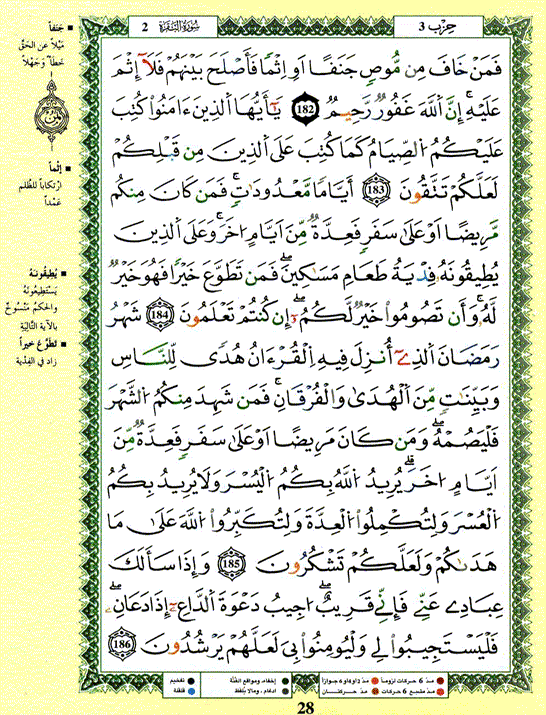 حِزْب 3
سُورَةُ البَقَرَة 2
فَمَنْ خَافَ مِن مُّوصٍ جَنَفًا اَوِ اِثْمًا فَأَصْلَحَ بَيْنَهُمْ فَلَآ إِثْمَ
عَلَيْهِۖ إِنَّ اَللَّهَ غَفُورٌ رَّحِيمٌ 182 يَٰٓأَيُّهَا اَلذِينَ ءَامَنُوا كُتِبَ
عَلَيْكُمُ اُلصِّيَامُ كَمَا كُتِبَ عَلَى اَلذِينَ مِن قَبْلِكُمْ
لَعَلَّكُمْ تَتَّقُونَ 183 أَيَّامًا مَّعْدُودَٰتٍۖ فَمَن كَانَ مِنكُم
مَّرِيضًا اَوْ عَلَىٰ سَفَرٍ فَعِدَّةٌ مِّنَ اَيَّامٍ اُخَرَۖ وَعَلَى اَلذِينَ
يُطِيقُونَهُۥ فِدْيَةُ طَعَامِ مَسَٰكِينَۖ فَمَن تَطَوَّعَ خَيْرًا فَهُوَ خَيْرٌ
لَّهُۥۖ وَأَن تَصُومُوا خَيْرٌ لَّكُمُۥٓۖ إِن كُنتُمْ تَعْلَمُونَ 184 شَهْرُ
رَمَضَانَ اَلذِےٓ أُنزِلَ فِيهِ اِلْقُرْءَانُ هُدًى لِّلنَّاسِ
وَبَيِّنَٰتٍ مِّنَ اَلْهُدَىٰ وَالْفُرْقَانِۖ فَمَن شَهِدَ مِنكُمُ اُلشَّهْرَ
فَلْيَصُمْهُۖ وَمَن كَانَ مَرِيضًا اَوْ عَلَىٰ سَفَرٍ فَعِدَّةٌ مِّنَ
اَيَّامٍ اُخَرَۖ يُرِيدُ اُللَّهُ بِكُمُ اُلْيُسْرَ وَلَا يُرِيدُ بِكُمُ
اُلْعُسْرَ وَلِتُكْمِلُوا اُلْعِدَّةَ وَلِتُكَبِّرُوا اُللَّهَ عَلَىٰ مَا
هَدَىٰكُمْ وَلَعَلَّكُمْ تَشْكُرُونَ 185 وَإِذَا سَأَلَكَ
عِبَادِے عَنِّے فَإِنِّے قَرِيبٌۖ اُجِيبُ دَعْوَةَ اَلدَّاعِۦٓ إِذَا دَعَانِۦۖ
فَلْيَسْتَجِيبُوا لِے وَلْيُومِنُوا بِيَ لَعَلَّهُمْ يَرْشُدُونَ 186
■ جَنَفاً
مَيْلاً عن الحَقِّ
خَطَأً وَجَهْلاً
■ إثْماً
ارْتِكاباً للظُّلمِ
عَمْداً
■ يُطِيقُونَهُ
يَسْتَطِيعُونَهُ
والحكمُ مَنْسُوخٌ
بالآيَةِ التَّالِيَةِ
■ تَطَوَّعَ خَيراً
زاد في الفِدْيَةِ
● مدّ 6 حركات لزوماً ● مدّ 2 أو 4 أو 6 جوازاً ● إخفاء، ومواقع الغُنَّة ● تفخيم
● مدّ مشبع 6 حركات ● مدّ حركتان ● ادغام، ومالا يُلفظ ● قلقلة
28